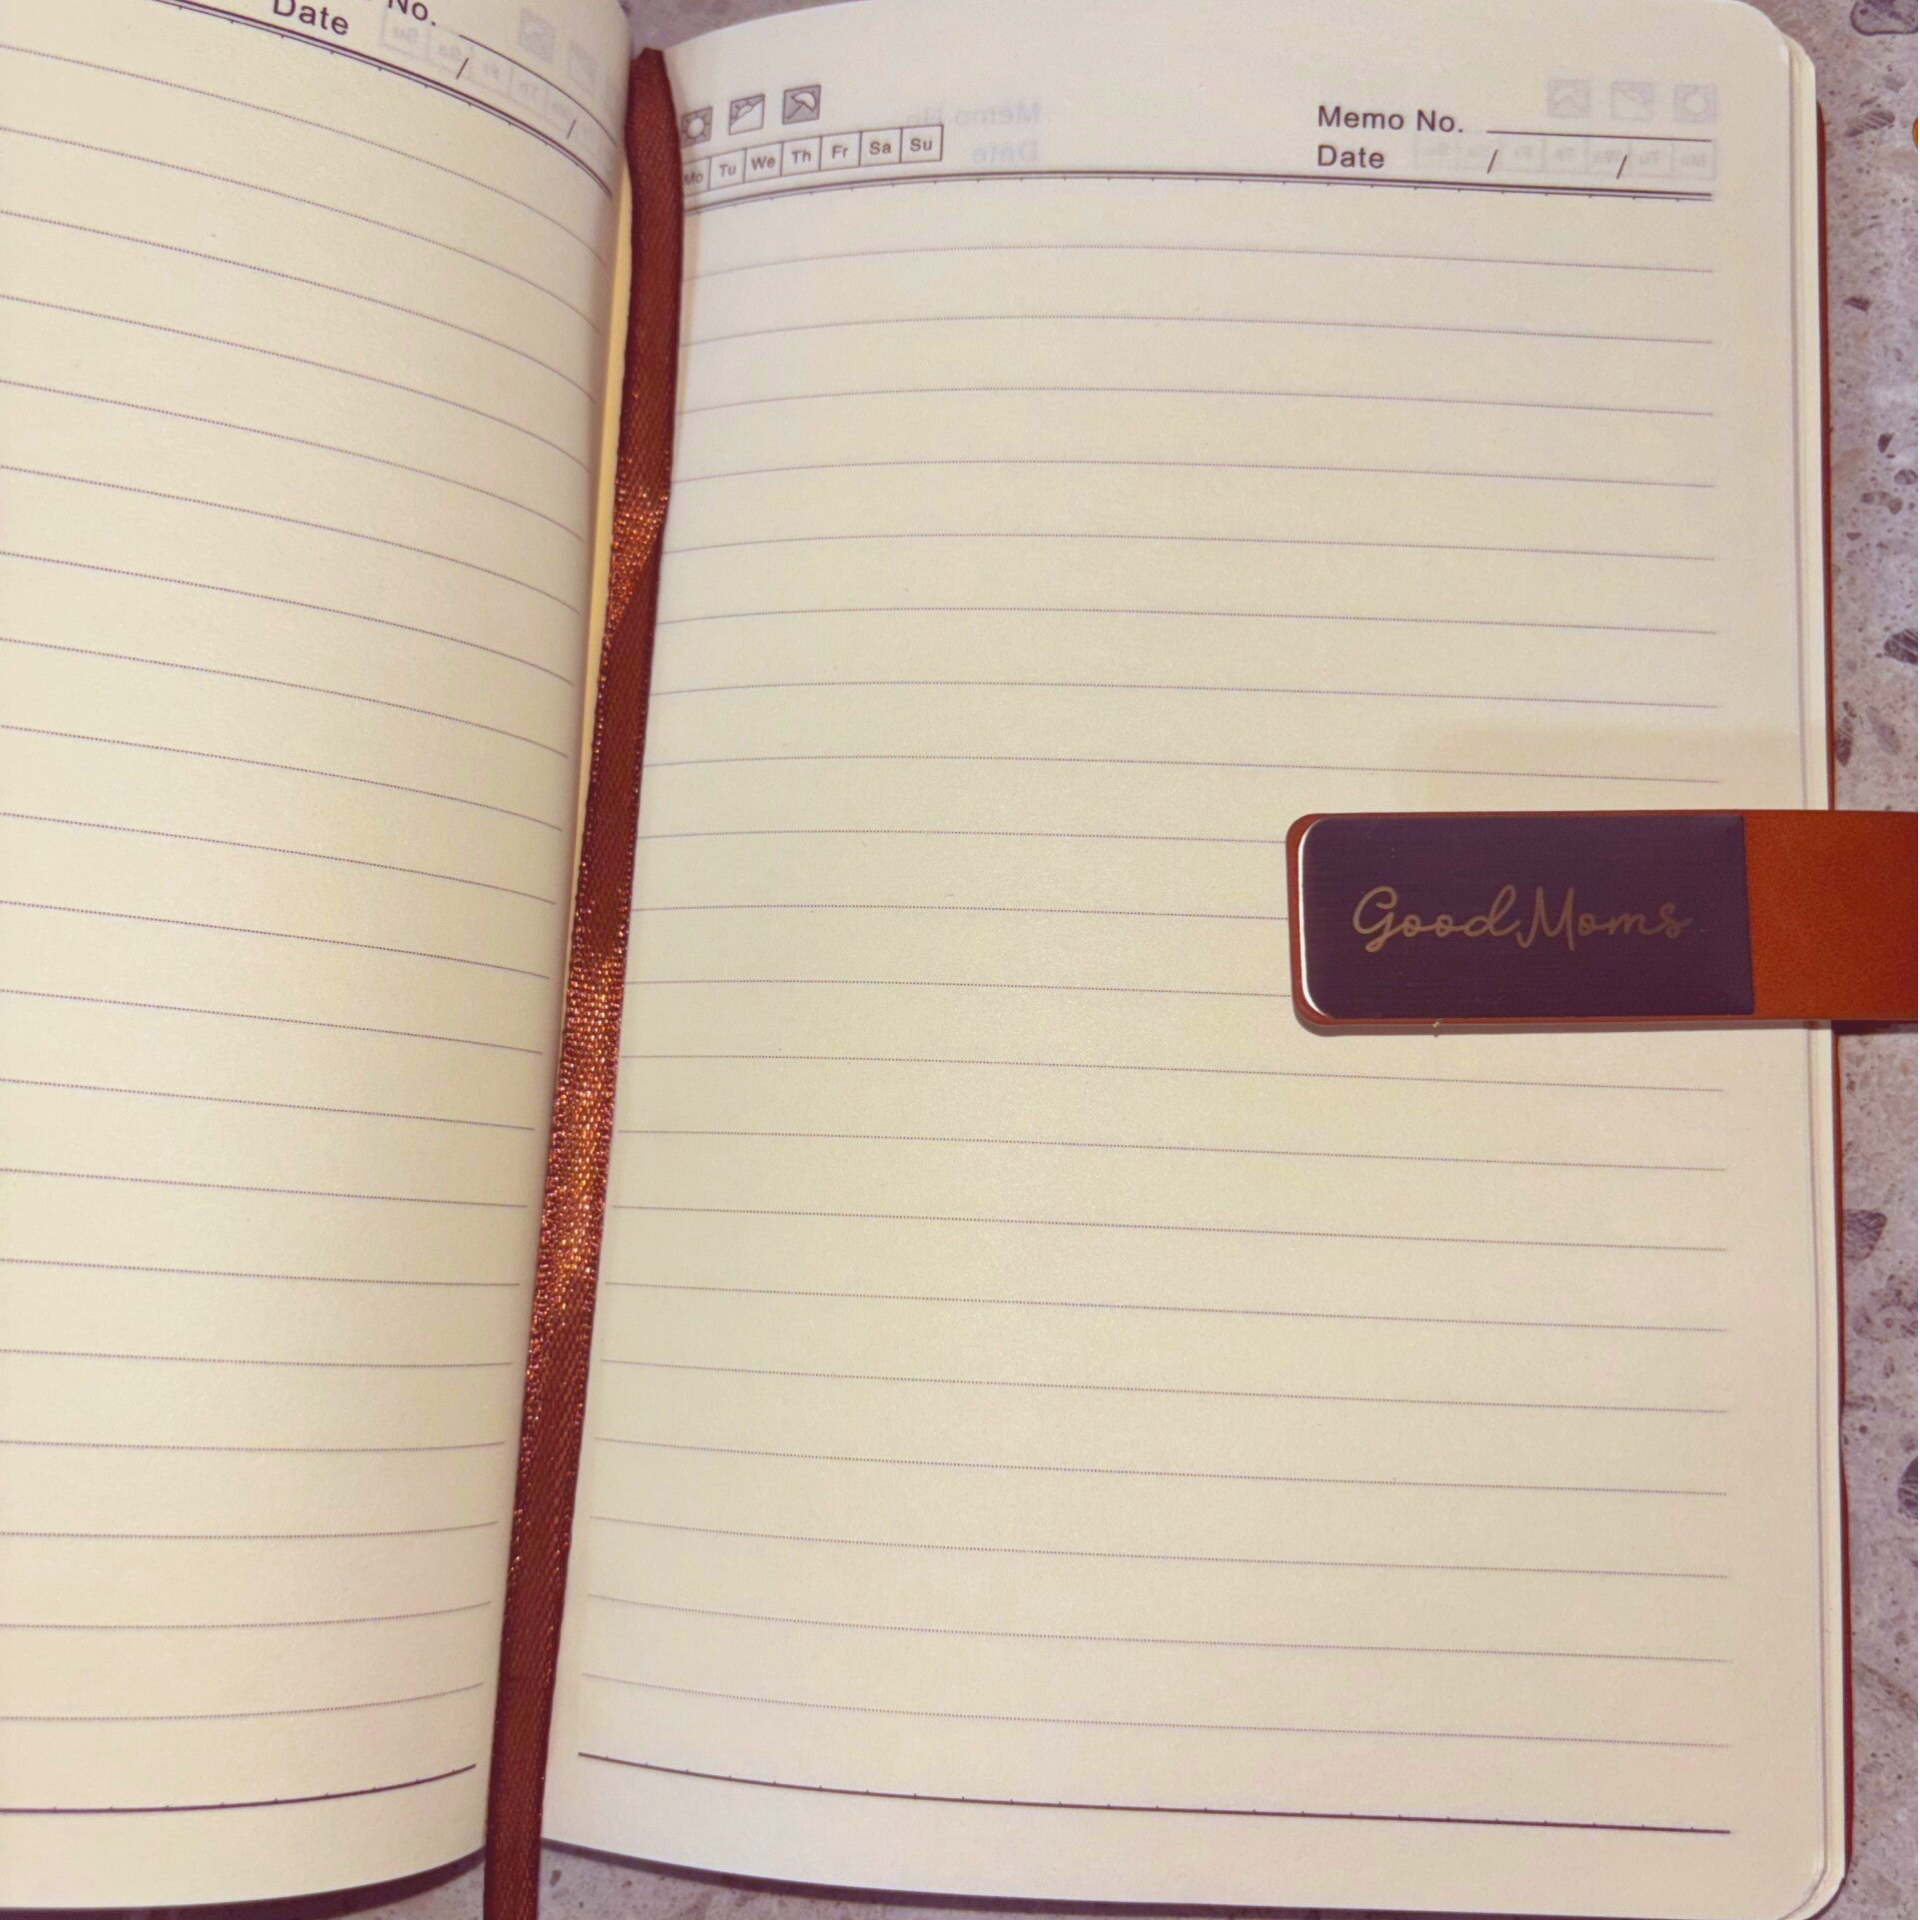 No.
Date / /
Memo No.
Mo Tu We Th Fr Sa Su
Date / /
Good Moms